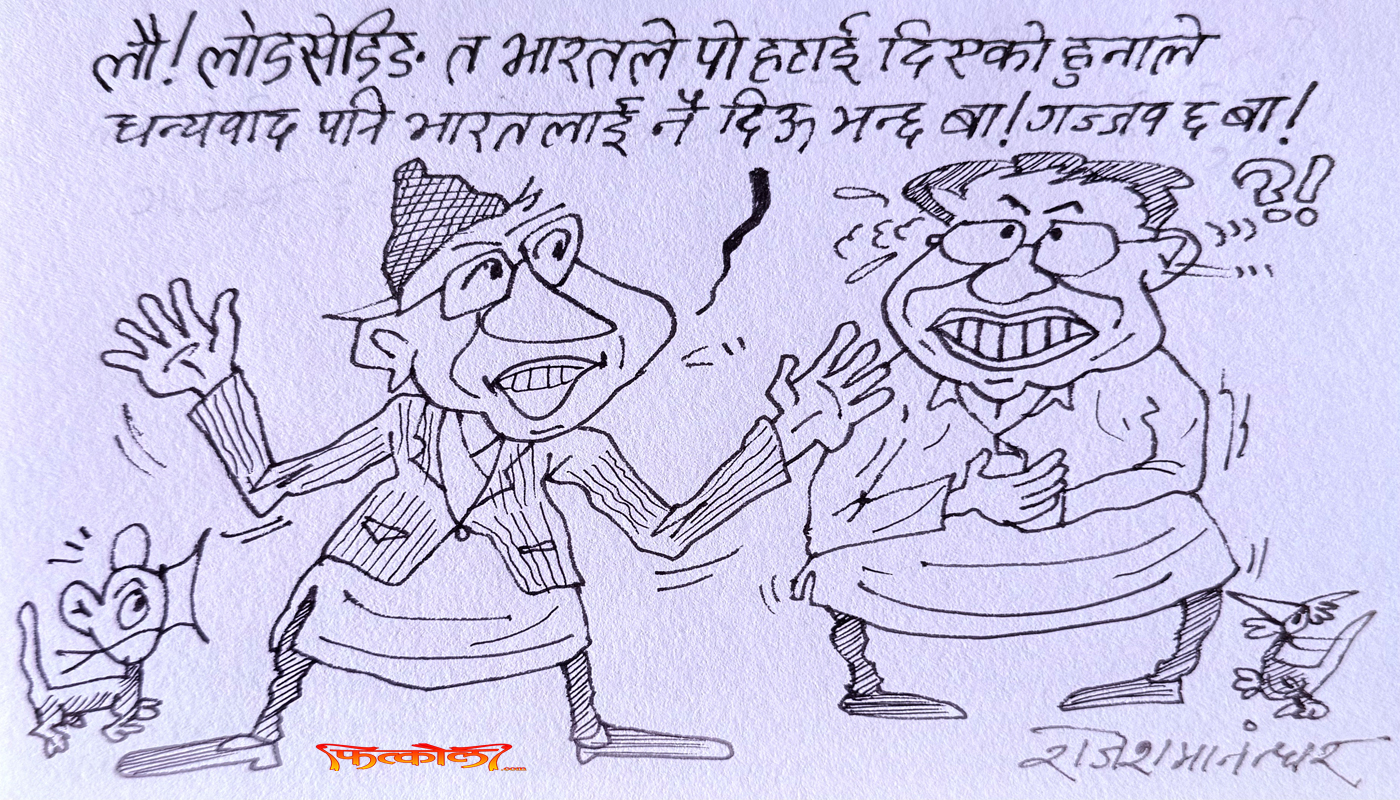 लौ! लोडसेडिङ त भारतले पो हटाई दिएको हुनाले
धन्यवाद पनि भारतलाई नै दिऊ भन्छ बा! गज्जब छ बा!
?!
फित्कौली.com
राजेश मानन्धर